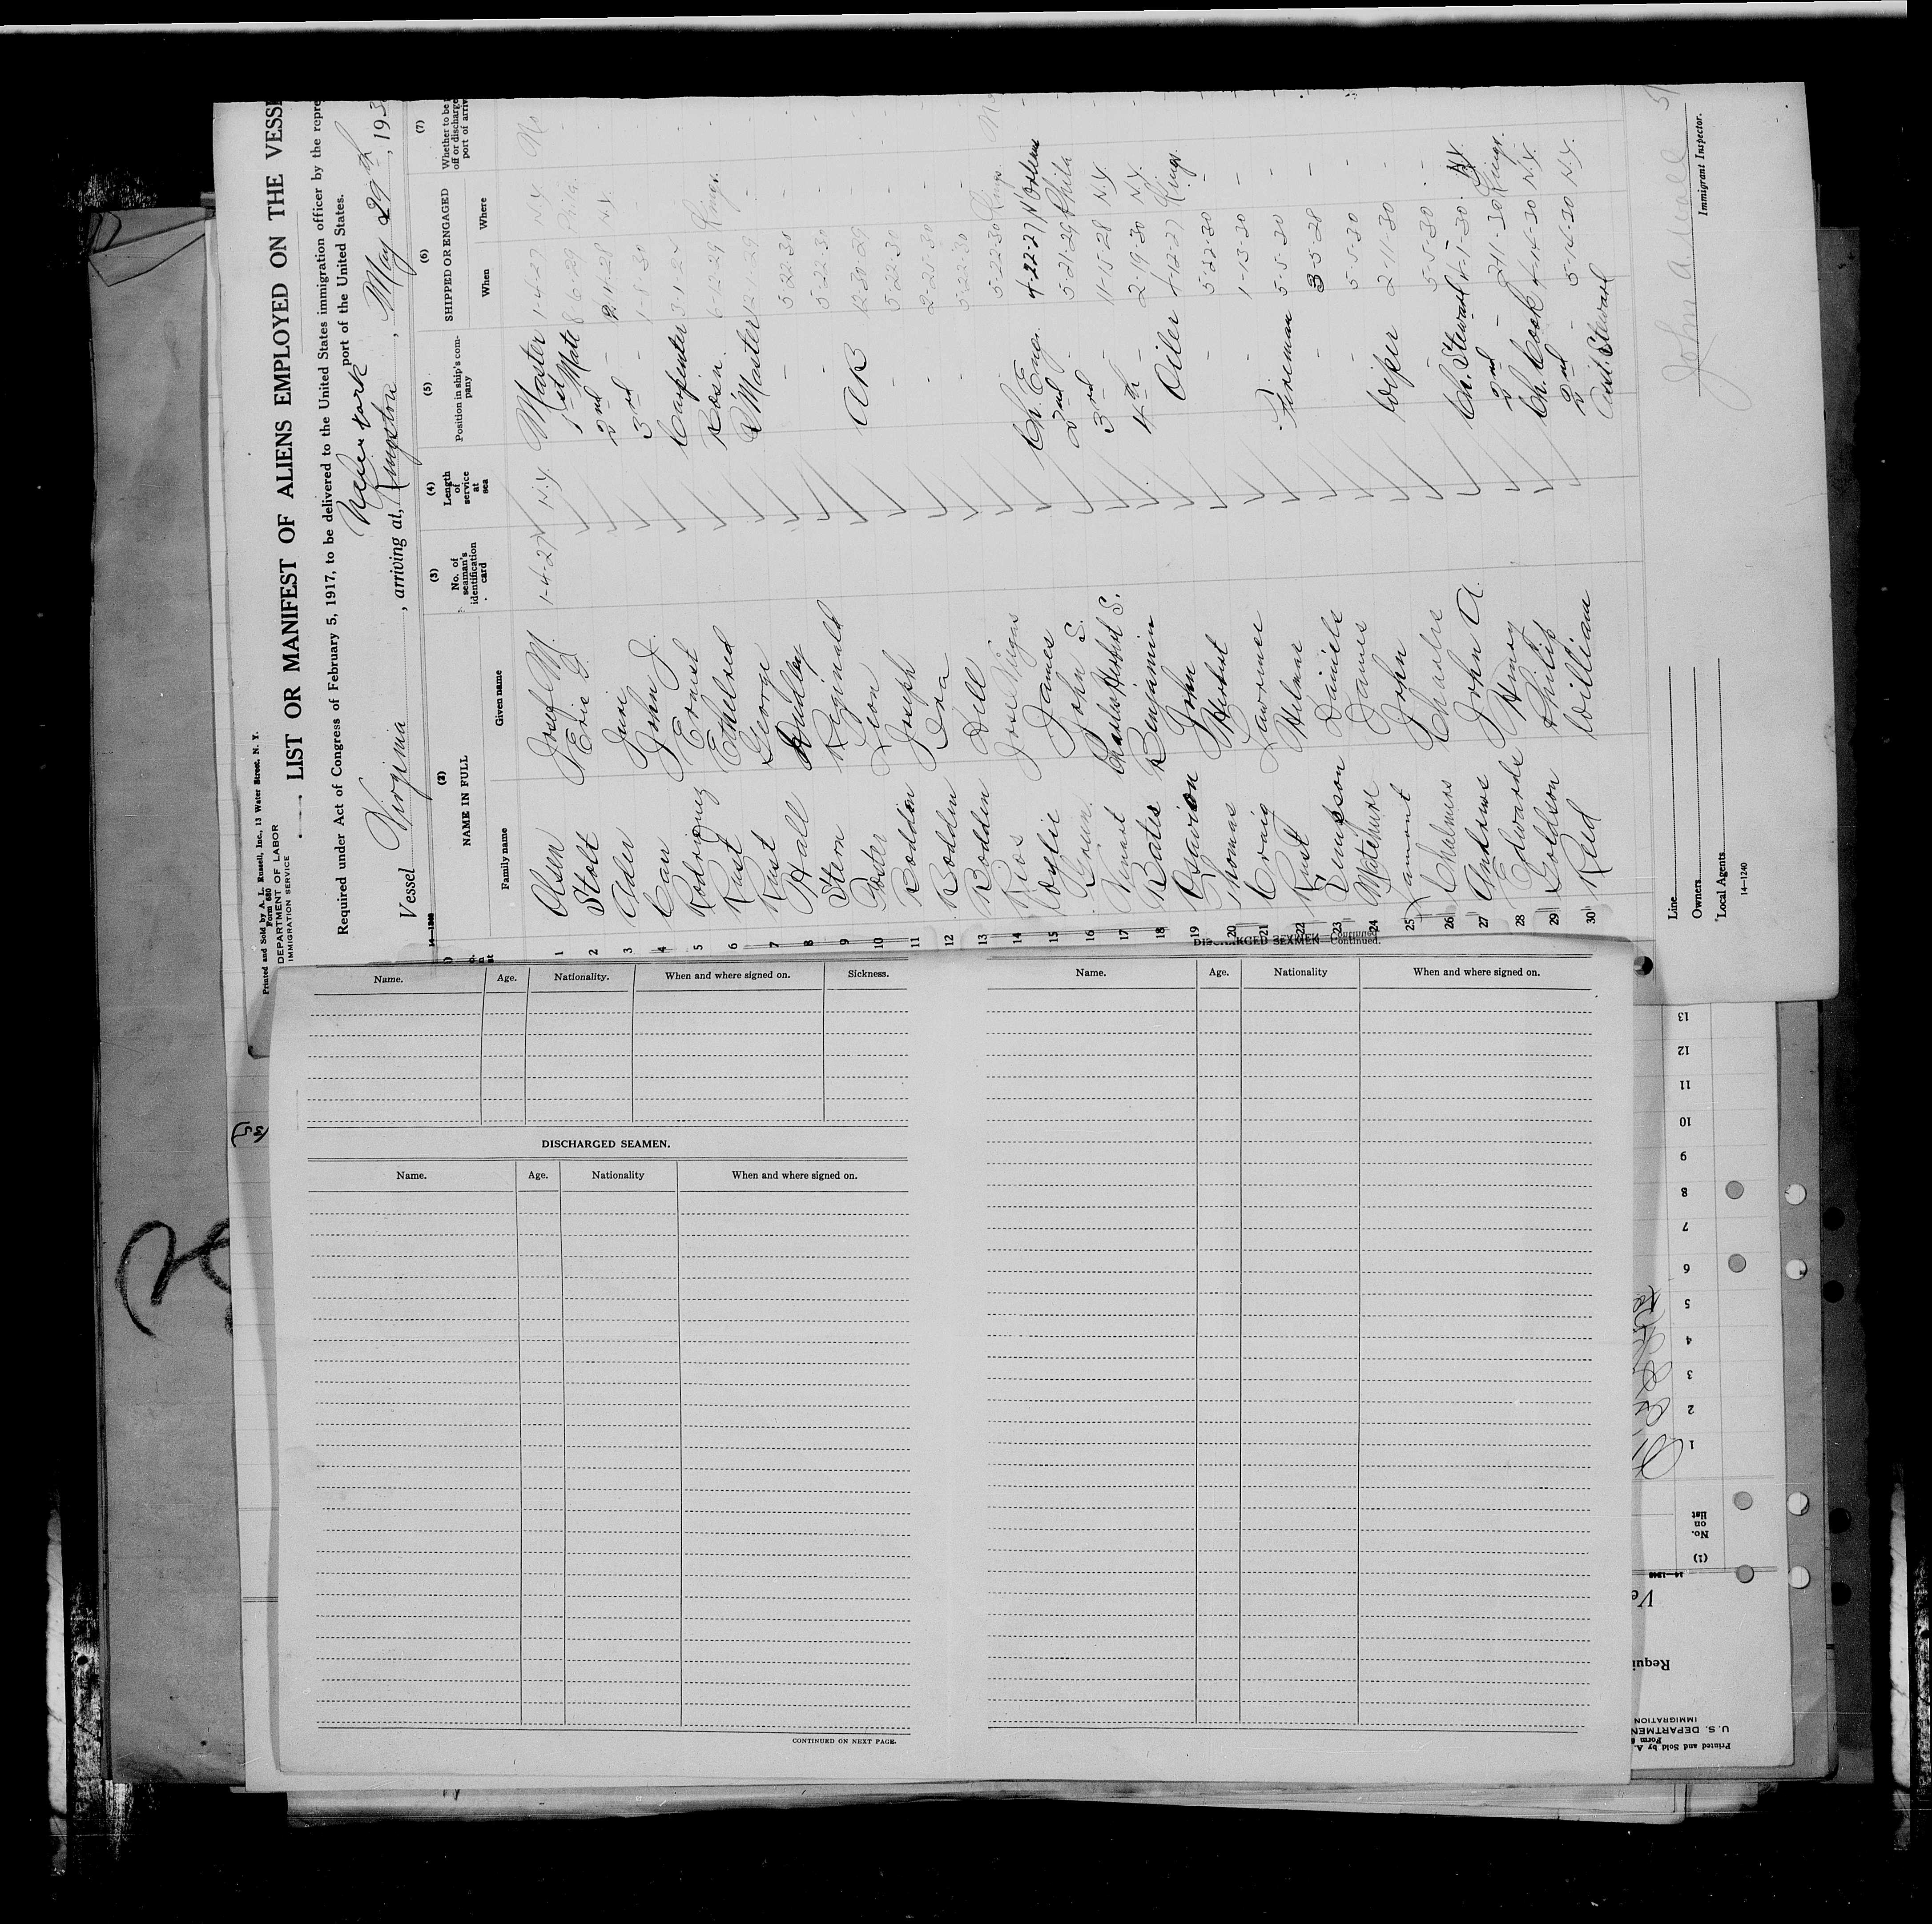 Printed and Sold by A. L. Russell, Inc., 13 Water Street, N. Y.
Form 680
DEPARTMENT OF LABOR
IMMIGRATION SERVICE
LIST OR MANIFEST OF ALIENS EMPLOYED ON THE VESS
Required under Act of Congress of February 5, 1917, to be delivered to the United States immigration officer by the repre
New York port of the United States.
Vessel Virginia, arriving at, Kingston, May 29th, 193
14-1240
(2) (3) (4) (5) (6) (7)
NAME IN FULL
No. of seaman's identification card
Length of service at sea
Position in ship's company
SHIPPED OR ENGAGED
Whether to be off or discharge port of arriv
Family name Given name When Where
1 Olsen Josef M. 1-4-27 N.Y. Master 1-4-27 N.Y. No
2 Stolt Eric G. 1st Mate 8-6-29 Phila. -
3 Ader Juri 2nd - 28 N.Y. -
4 Carr John J. 3rd - 1-8-30 -
5 Rodriquez Ernest Carpenter 3-1-2
6 Rust Ethelred Bosn. 6-12-29 Kings.
7 Rust George Q Master 12-1-29 -
8 Hall Dudley - 5-22-30 -
9 Stern Riginald - 5-22-30 -
10 Foster Leon AB 12-30-29 -
11 Bodden Joseph - 5-22-30 -
12 Bodden Ira - 2-25-30 -
13 Bodden Dell - 5-22-30 -
14 Rios Jose - 5-22-30 Kings No
15 Wylie James Ch. Eng. 4-22-27 N'Orleans
16 Green John S. 2nd - 5-21-29 Phila
17 Charles Herbert S. 3rd - 11-15-28 N.Y.
18 Bates Benjamin 4th - 2-19-30 N.Y.
19 John Oiler 4-12-27 Kings.
20 Thomas Herbert - 5-22-30 -
21 Craig Lawrence - 1-13-30 -
22 Rust Fireman 5-5-30 -
23 Daniels - 3-5-28 -
24 James - 5-5-30 -
25 John Wiper 2-11-30 -
26 Chalmers Charles - 5-5-30 -
27 Andrews John A. Ch. Steward 4-1-30 N.Y.
28 Edwards Henry 2nd - 2-11-30 Kings.
29 Goldson Philip Ch. Cook 4-4-30 N.Y.
30 Reid William 2nd - 5-14-30 N.Y.
Line
Owners
Local Agents
14-1240
Immigrant Inspector.
Name. Age. Nationality. When and where signed on. Sickness.
DISCHARGED SEAMEN.
Name. Age. Nationality When and where signed on.
CONTINUED ON NEXT PAGE.
DISCHARGED SEAMEN Continued.
Name. Age. Nationality When and where signed on.
13
12
11
10
9
8
7
6
5
4
3
2
1
No. on list
(1)
14-1240
Ve
Requi
IMMIGRATION
U. S. DEPARTMEN
Form 6
Printed and Sold by A.